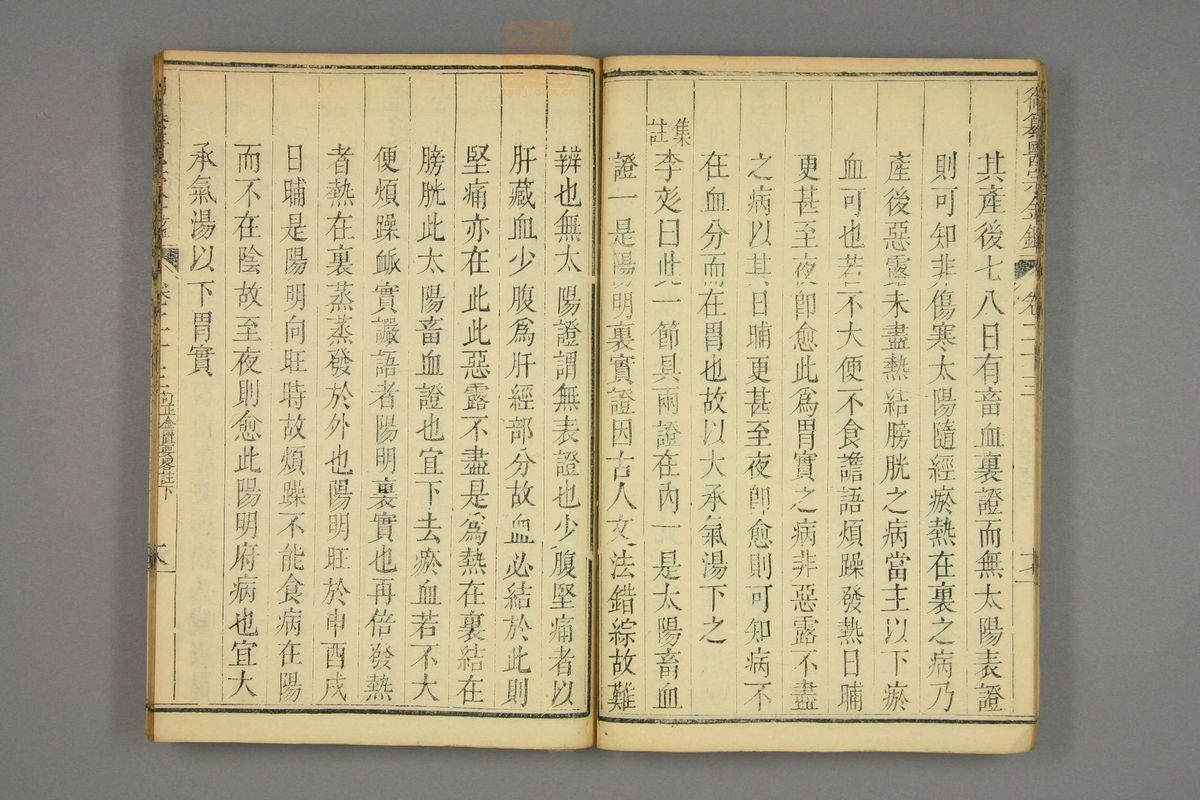 御纂醫宗金鑑 卷二十三
其產後七八日有畜血裏證而無太陽表證
則可知非傷寒太陽隨經瘀熱在裏之病乃
產後惡露未盡熱結膀胱之病當主以下瘀
血可也若不大便不食譫語煩躁發熱日晡
更甚至夜卽愈此爲胃實之病非惡露不盡
之病以其日晡更甚至夜卽愈則可知病不
在血分而在胃也故以大承氣湯下之
集註
李彣曰此一節具兩證在內一是太陽畜血
證一是陽明裏實證因古人文法錯綜故難
辨也無太陽證謂無表證也少腹堅痛者以
肝藏血少腹爲肝經部分故血必結於此則
堅痛亦在此此惡露不盡是爲熱在裏結在
膀胱此太陽畜血證也宜下去瘀血若不大
便煩躁脈實讝語者陽明裏實也再倍發熱
者熱在裏蒸蒸發於外也陽明旺於申酉戌
日晡是陽明向旺時故煩躁不能食病在陽
而不在陰故至夜則愈此陽明府病也宜大
承氣湯以下胃實
訂正金匱要畧註下